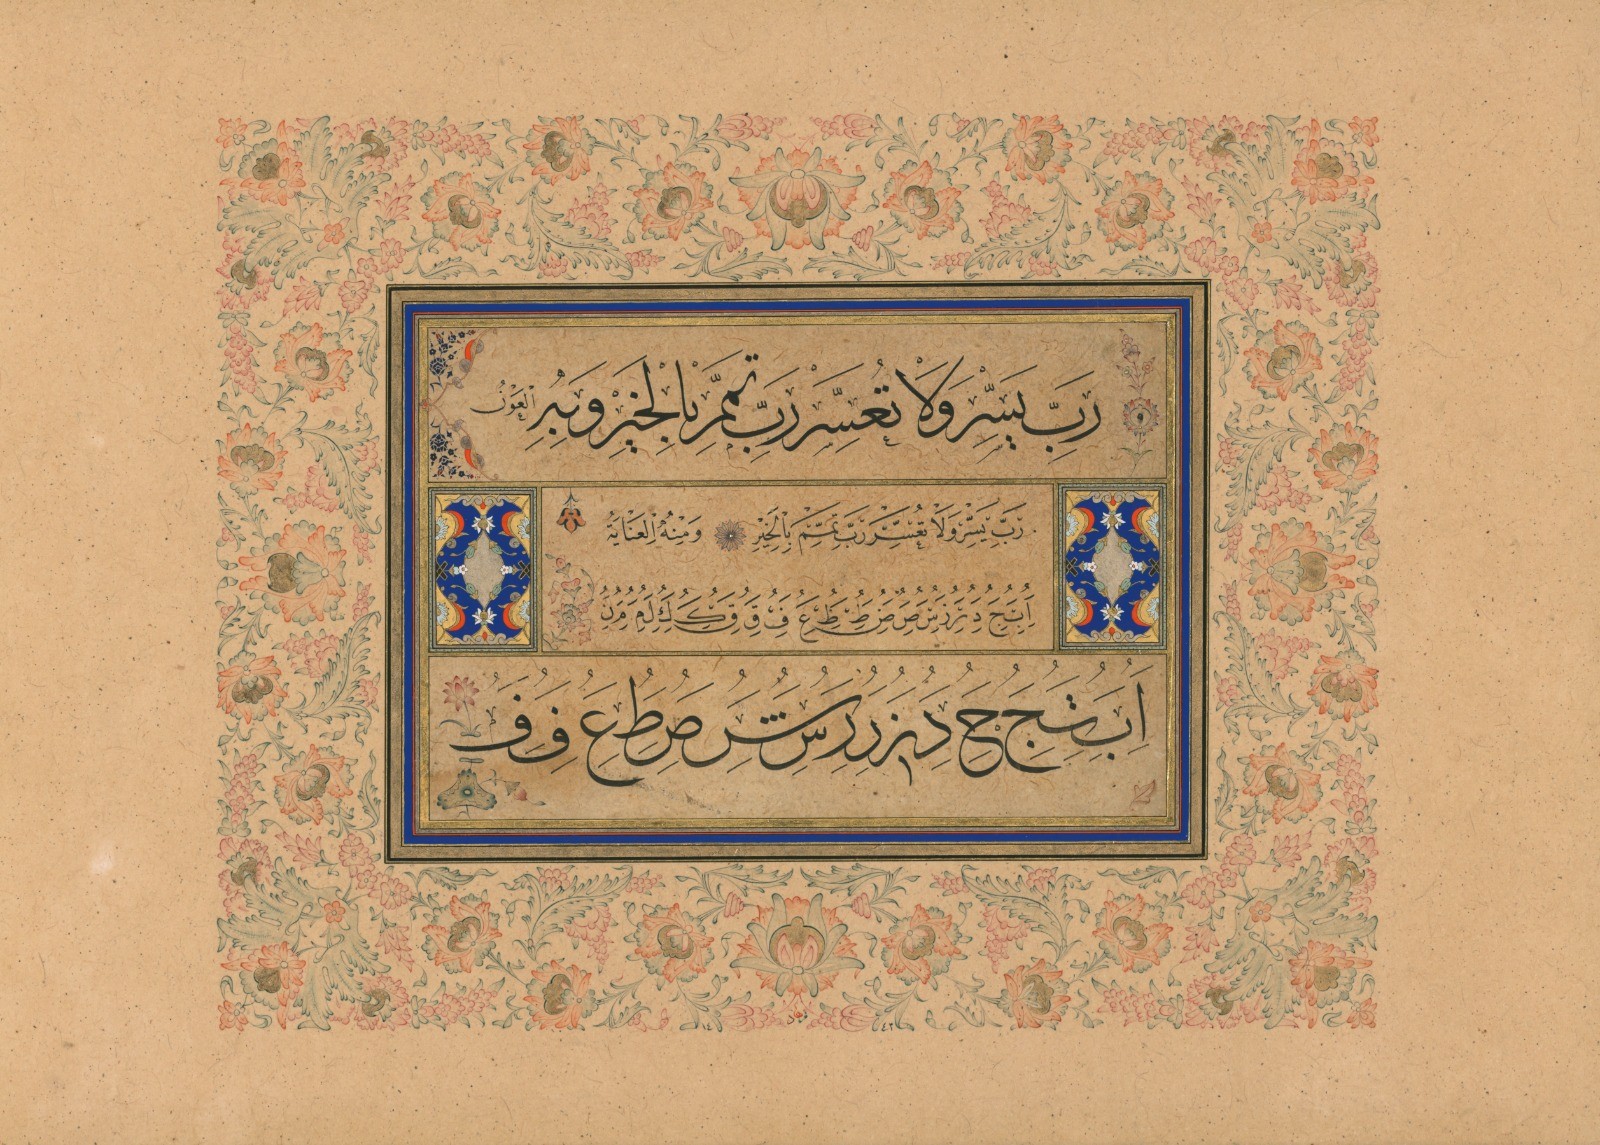 رَبِّ يَسِّرْ وَلَا تُعَسِّرْ رَبِّ تَمِّمْ بِالْخَيْرِ وَبِهِ الْعَوْنُ
رَبِّ يَسِّرْ وَلَا تُعَسِّرْ رَبِّ تَمِّمْ بِالْخَيْرِ وَمِنْهُ الْعِنَايَةُ
ا ب ج د ر ز س ص ض ط ظ ع ف ق ك ل م ن
ا ب ت ج ح د ر ز س ش ص ط ع ف ف